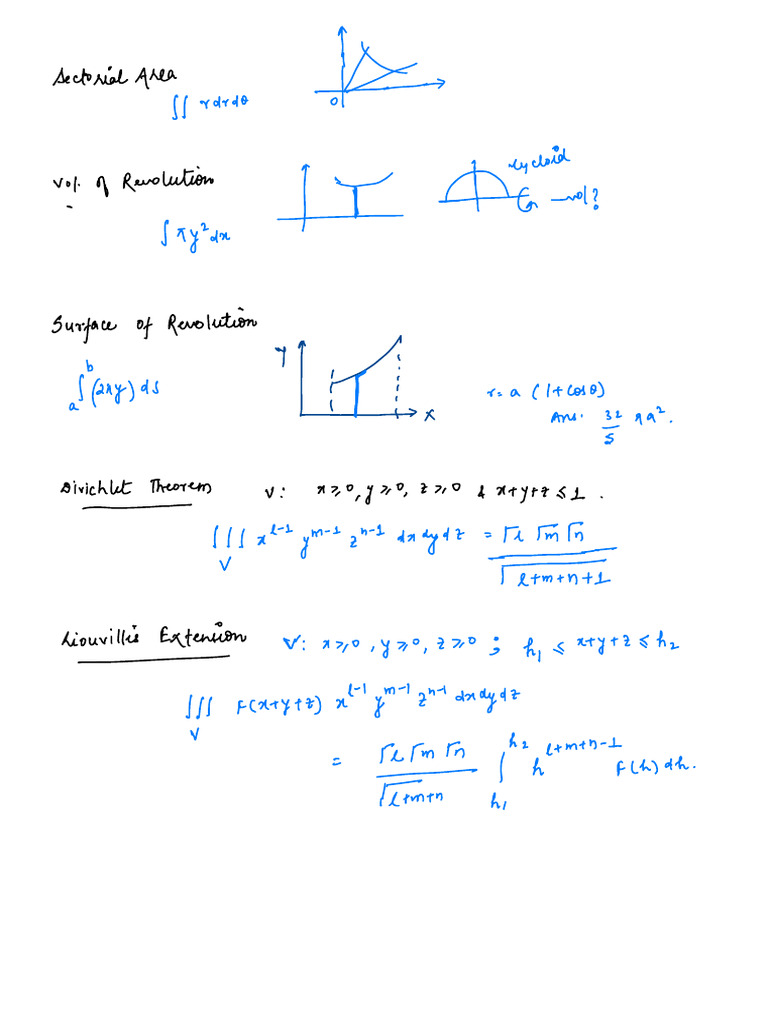 Sectorial Area
∬ r dr dθ
O
Vol. of Revolution
cycloid
vol?
∫ πy² dx
Surface of Revolution
Y
∫ₐᵇ (2πy) ds
X
r = a (1+cosθ)
Ans. 32/5 πa².
Dirichlet Theorem V: x≥0, y≥0, z≥0 & x+y+z≤1.
∭_V x^{l-1} y^{m-1} z^{n-1} dx dy dz = Γl Γm Γn / Γ(l+m+n+1)
Liouvillis Extension V: x≥0, y≥0, z≥0 ; h₁ ≤ x+y+z ≤ h₂
∭_V F(x+y+z) x^{l-1} y^{m-1} z^{n-1} dx dy dz
= Γl Γm Γn / Γ(l+m+n) ∫_{h₁}^{h₂} h^{l+m+n-1} F(h) dh.